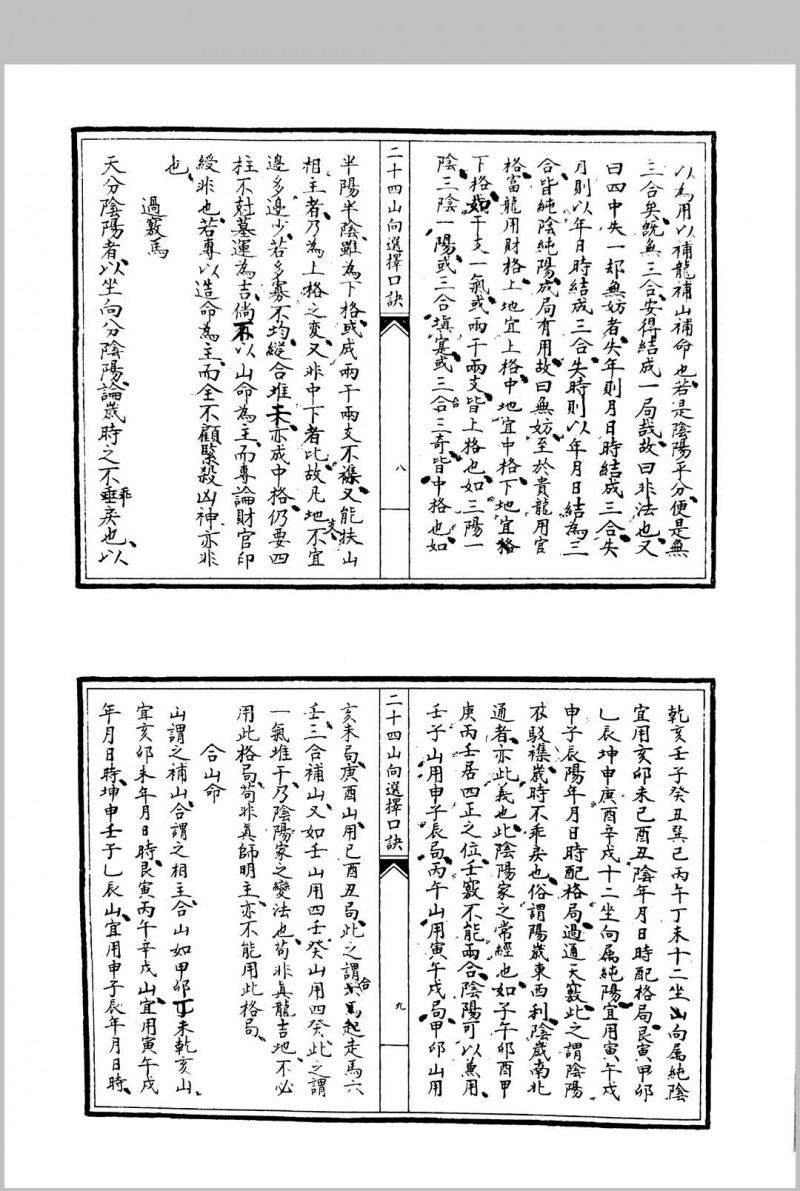 以為用以補龍補山補命也若是陰陽平分便是無
三合矣既無三合安得結成一局哉故曰非法也又
曰四中失一却無妨者失年則月日時結成三合失
月則以年日時結成三合失時則以年月日結為三
合皆純陰純陽成局有用故曰無妨至於貴龍用官
格富龍用財格上地宜上格中地宜中格下地宜格
下格如干支一氣或兩干兩支皆上格也如三陽一
陰三陰一陽或三合填寔或三合三奇皆中格也如
二十四山向選擇口訣
八
半陽半陰雖為下格或成兩干兩支不襍又能扶山
相主者乃為上格之變又非中下者比故凡地支不宜
邊多邊少若多寡不均縱合堆未亦成中格仍要四
柱不尅墓運為吉倘不以山命為主而專論財官印
綬非也若專以造命為主而全不顧緊殺凶神亦非
也
過竅馬
天分陰陽者以坐向分陰陽論歲時之不乖戾也以
乾亥壬子癸丑巽巳丙午丁未十二坐山向屬純陰
宜用亥卯未巳酉丑陰年月日時配格局艮寅甲卯
乙辰坤申庚酉辛戌十二坐向属純陽宜用寅午戌
申子辰陽年月日時配格局過通天竅此之謂陰陽
不駁襍歲時不乖戾也俗謂陽歲東西利陰歲南北
通者亦此義也此陰陽家之常經也如子午卯酉甲
庚丙壬居四正之位壬竅不能兩合陰陽可以兼用
壬子山用申子辰局丙午山用寅午戌局甲卯山用
二十四山向選擇口訣
九
亥未局庚酉山用巳酉丑局此之謂合馬起走馬六
壬三合補山又如壬山用四壬癸山用四癸此之謂
一氣堆干乃陰陽家之變法也苟非真龍吉地不必
用此格局苟非真師明主亦不能用此格局
合山命
山謂之補山合謂之相主合山如甲卯丁未乾亥山
宜亥卯未年月日時艮寅丙午辛戌山宜用寅午戌
年月日時坤申壬子乙辰山宜用申子辰年月日時